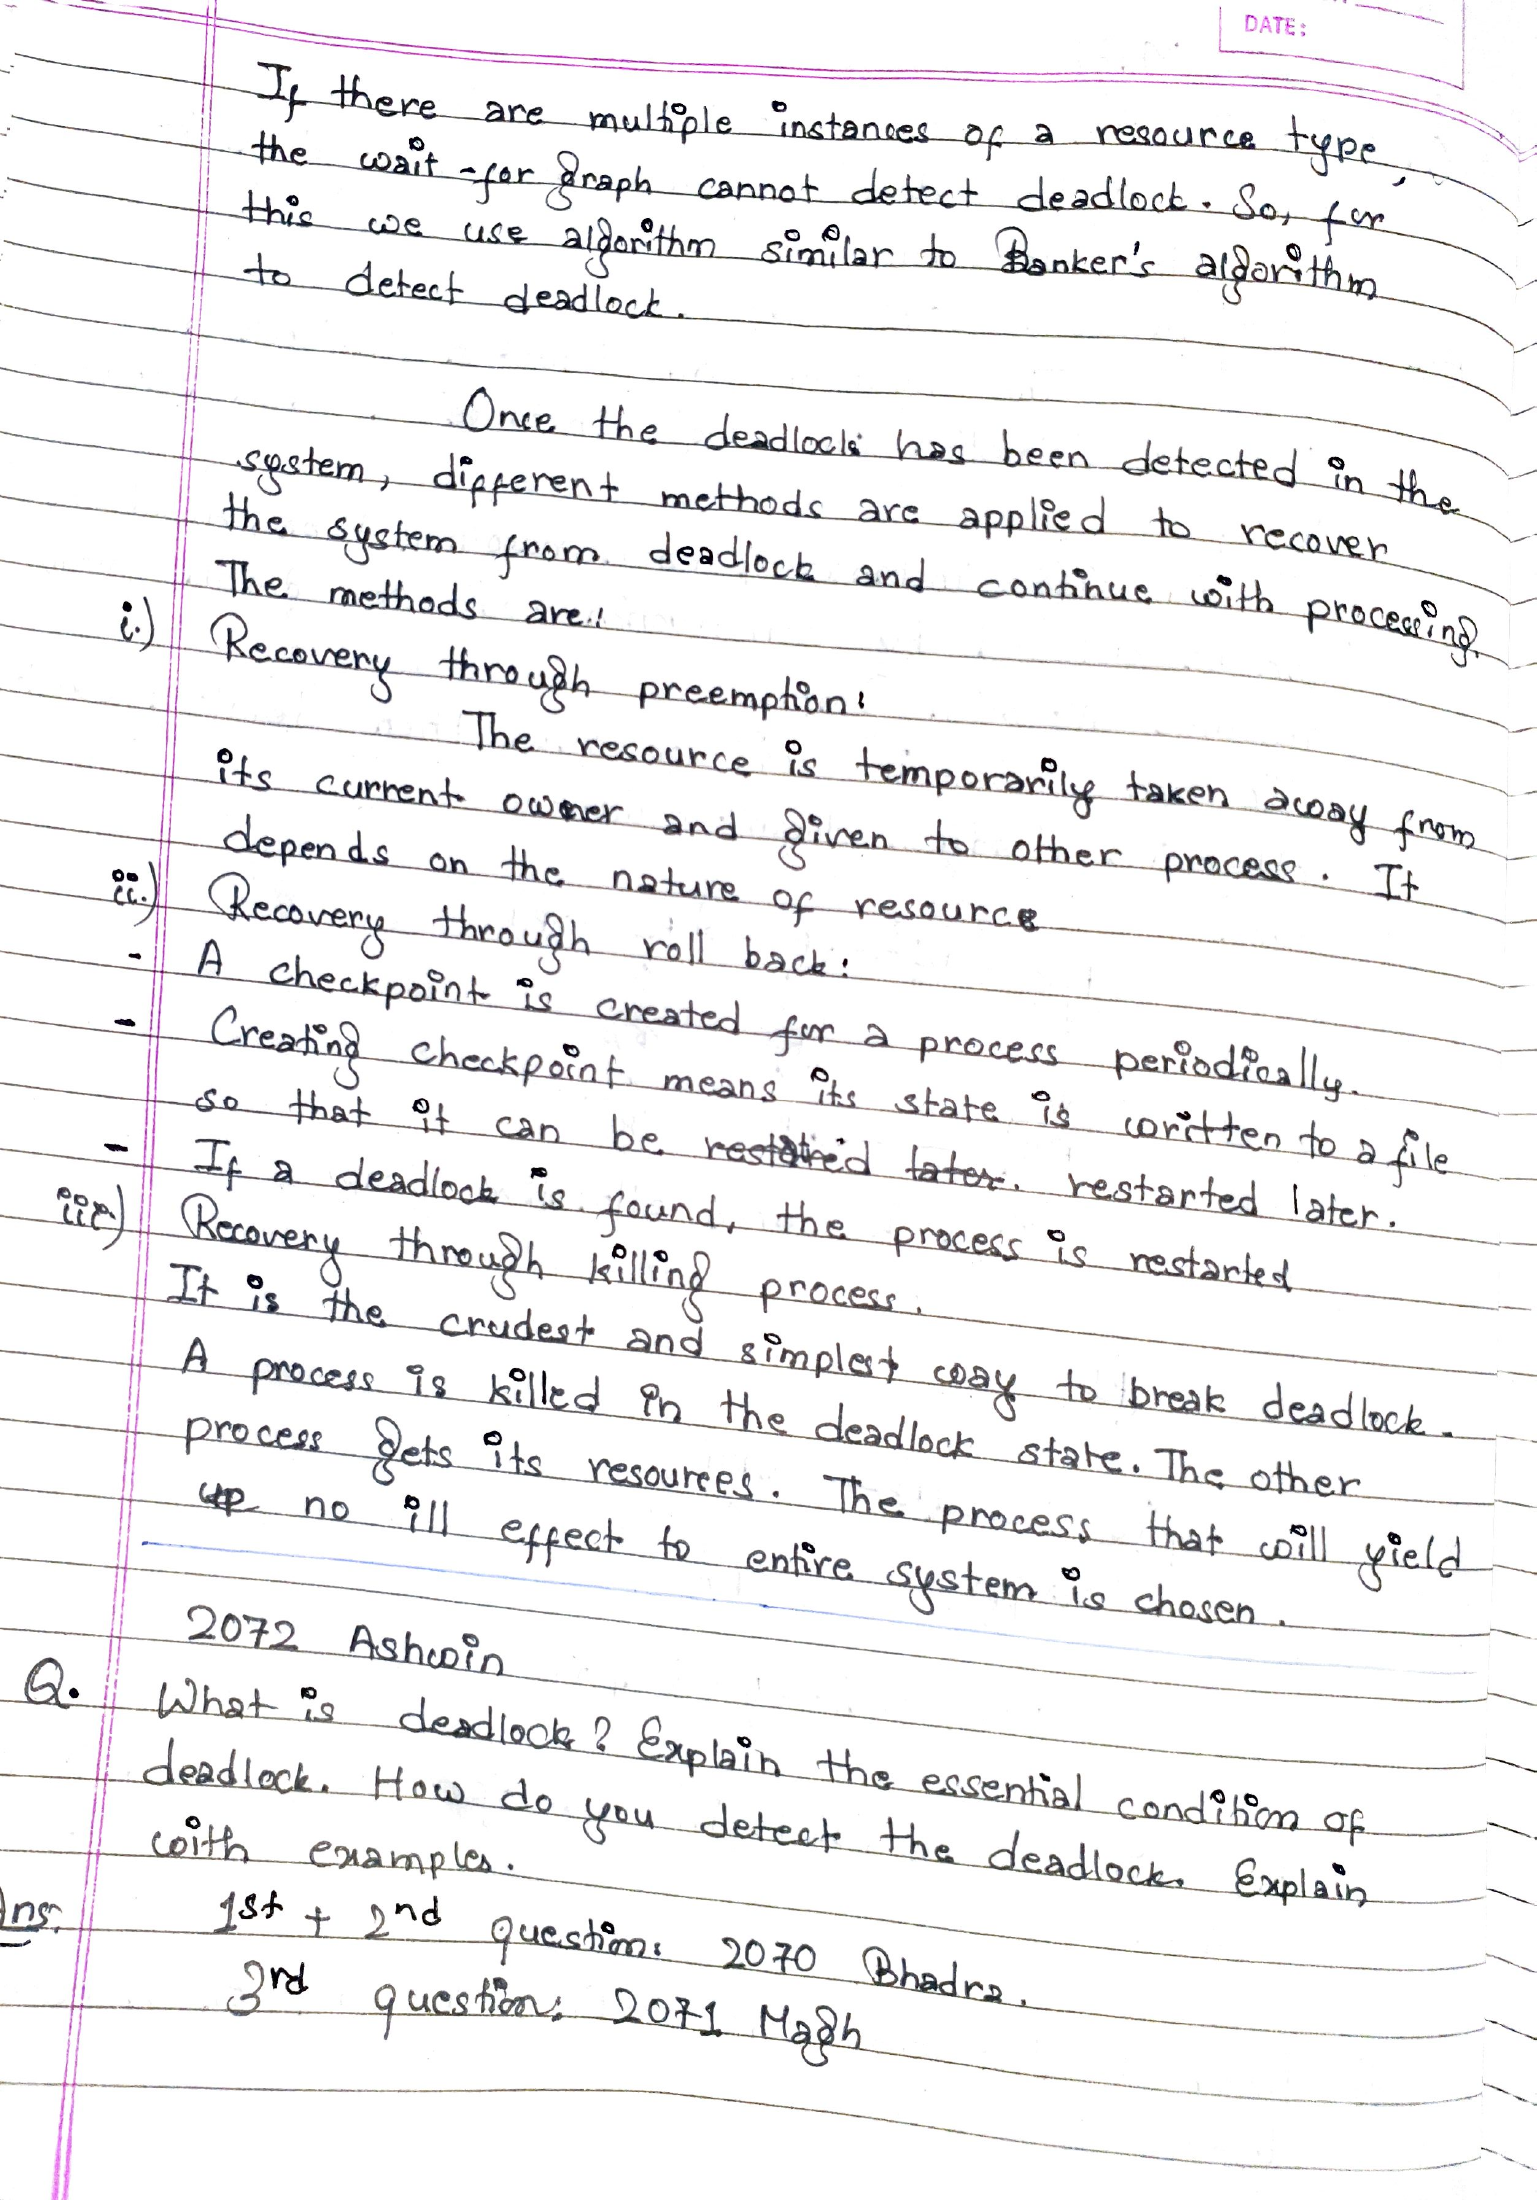 DATE:
If there are multiple instances of a resource type,
the wait-for graph cannot detect deadlock. So, for
this we use algorithm similar to Banker's algorithm
to detect deadlock.
Once the deadlock has been detected in the
system, different methods are applied to recover
the system from deadlock and continue with processing.
The methods are:
i.) Recovery through preemption:
The resource is temporarily taken away from
its current owner and given to other process. It
depends on the nature of resource
ii.) Recovery through roll back:
- A checkpoint is created for a process periodically.
- Creating checkpoint means its state is written to a file
so that it can be restarted later. restarted later.
- If a deadlock is found, the process is restarted
iii) Recovery through killing process.
It is the crudest and simplest way to break deadlock.
A process is killed in the deadlock state. The other
process gets its resources. The process that will yield
up no ill effect to entire system is chosen.
2072 Ashwin
Q. What is deadlock? Explain the essential condition of
deadlock. How do you detect the deadlock. Explain
with examples.
Ans. 1st + 2nd question: 2070 Bhadra.
3rd question: 2071 Magh